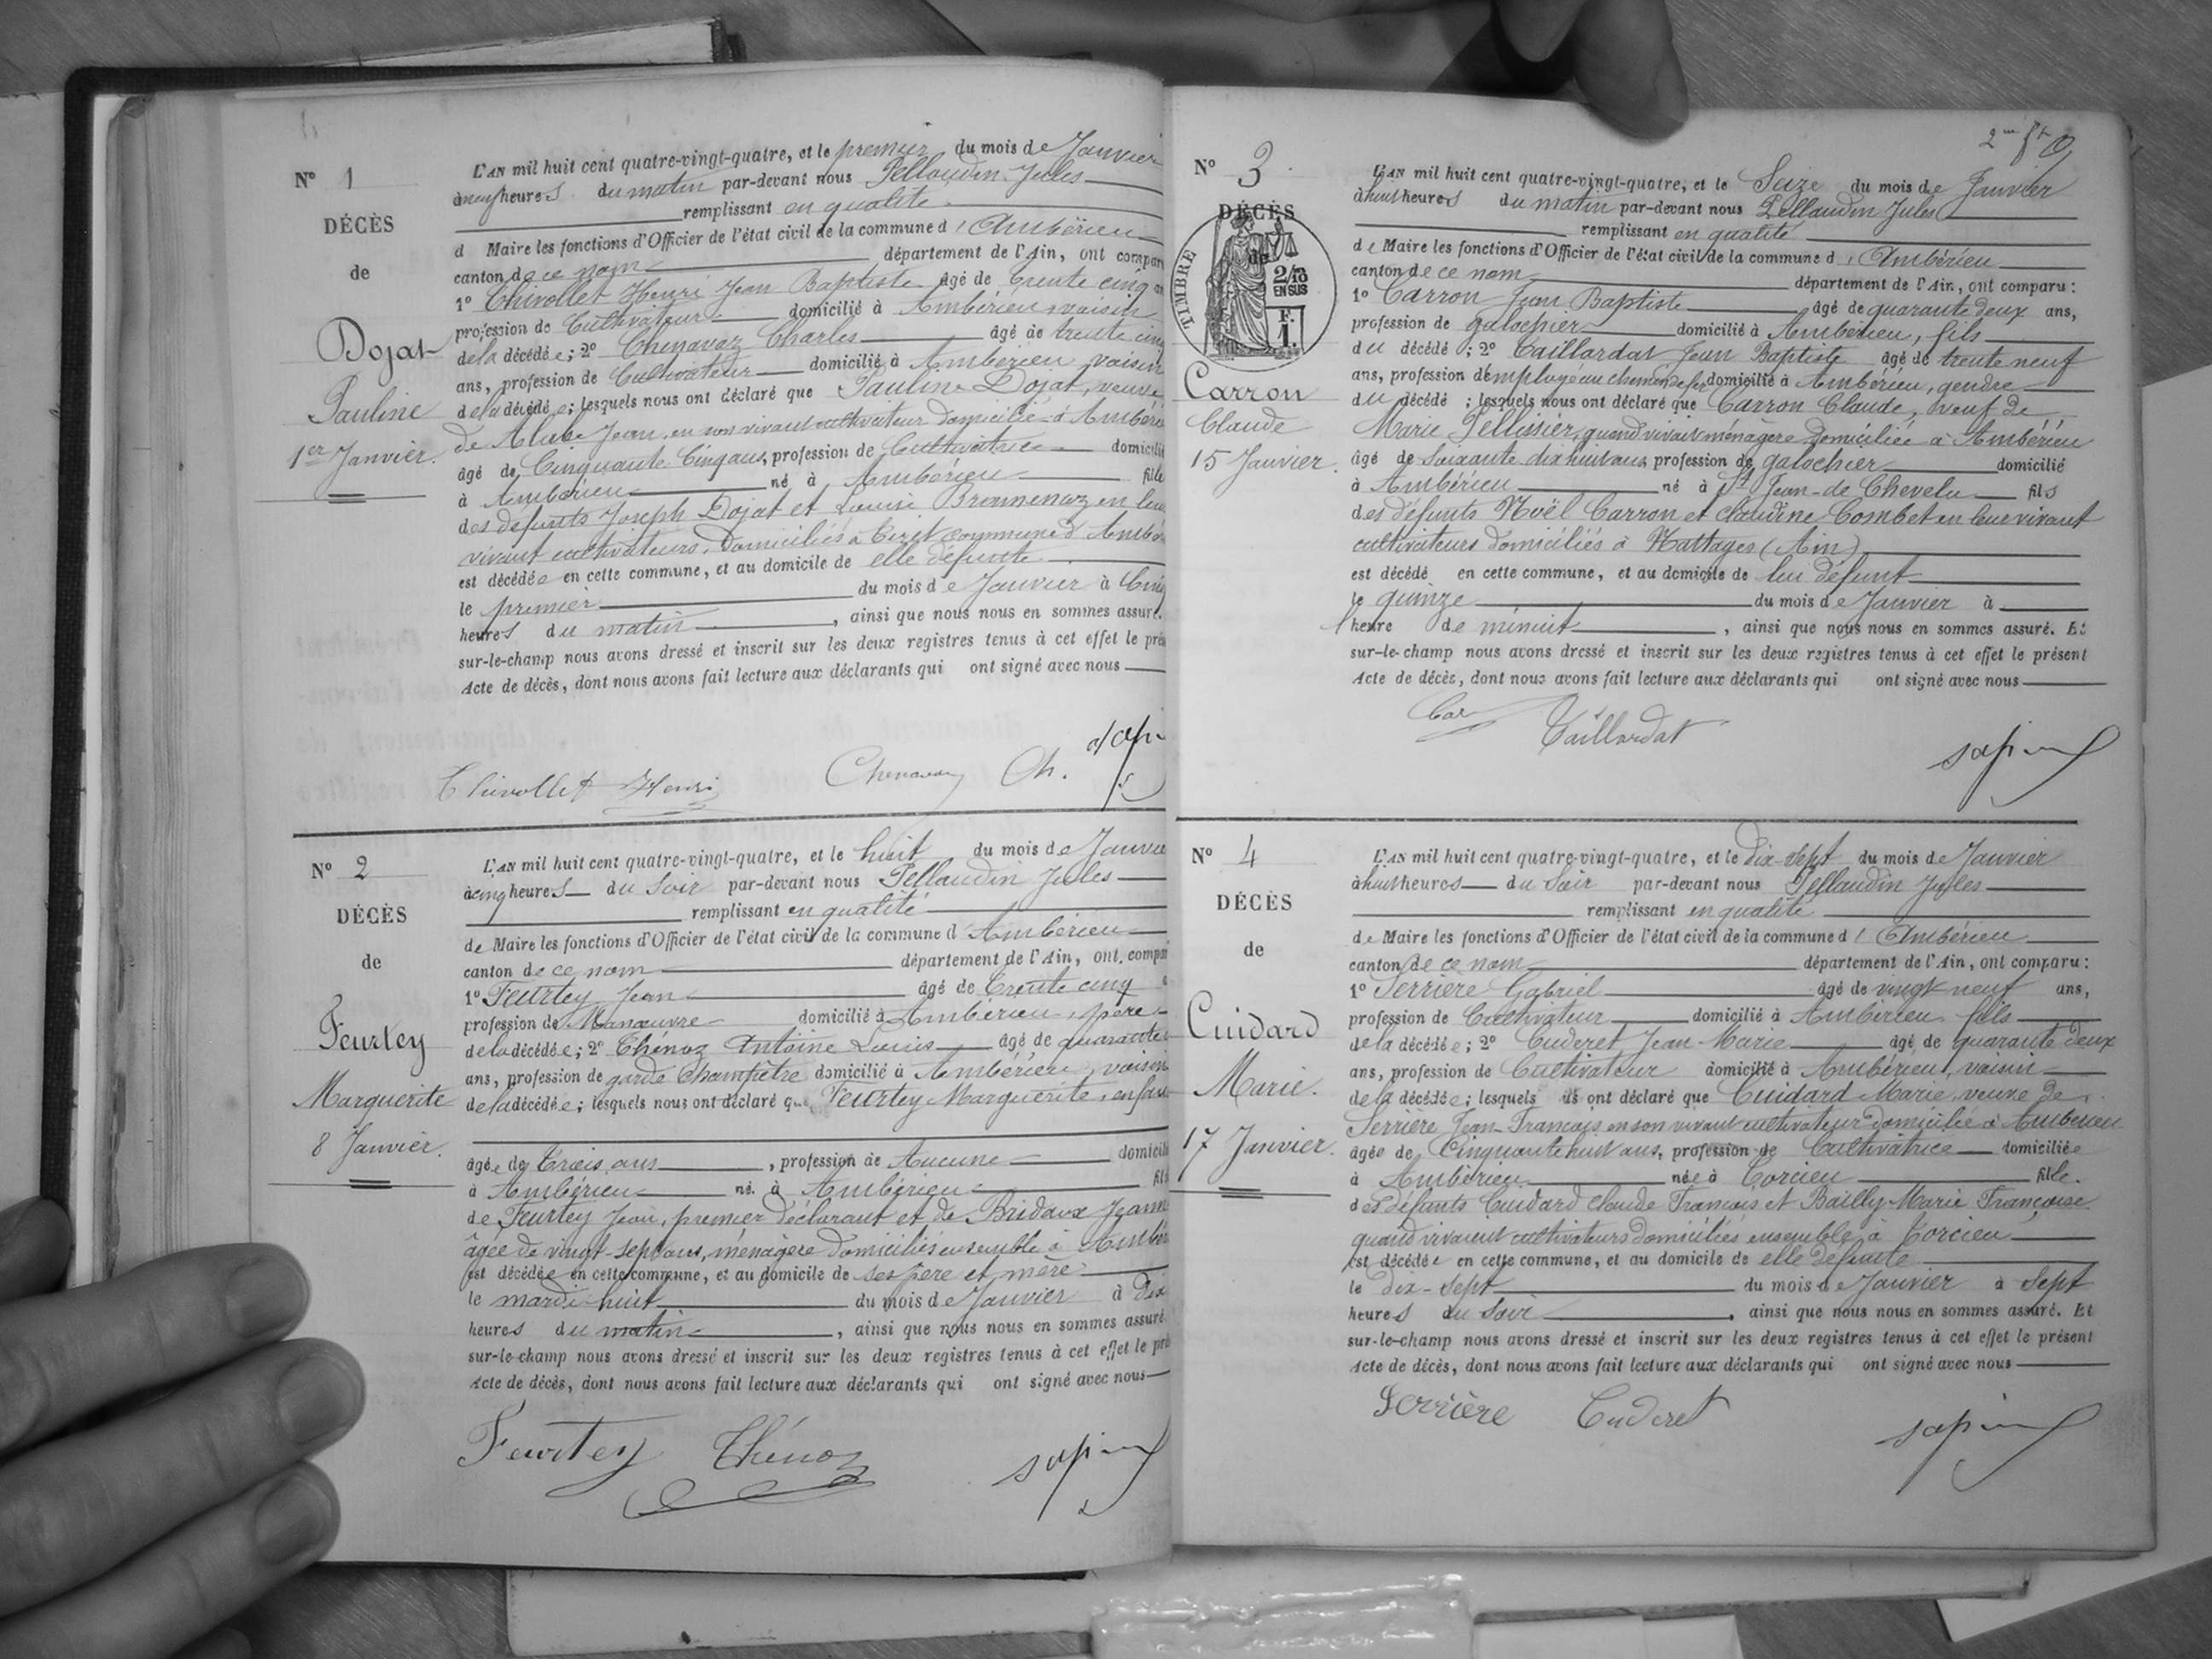 N° 1
DÉCÈS
de
Dojat
Pauline
1er Janvier.
L'AN mil huit cent quatre-vingt-quatre, et le premier du mois de Janvier
à neuf heures du matin par-devant nous Pellaudin Jules
remplissant en qualité
d Maire les fonctions d'Officier de l'état civil de la commune d'Ambérieu
canton de ce nom département de l'Ain, ont compar
1° Thivollet Henri Jean Baptiste âgé de trente cinq an
profession de Cultivateur domicilié à Ambérieu voisin
de la décédée; 2° Chenavaz Charles âgé de trente cinq
ans, profession de Cultivateur domicilié à Ambérieu voisin
de la décédée; lesquels nous ont déclaré que Pauline Dojat, veuve
de Jean, en son vivant cultivateur domicilié à Ambérie
âgé de Cinquante Cinq ans, profession de Cultivatrice domicilié
à Ambérieu né à Ambérieu fille
des défunts Joseph Dojat et Louise en leur
vivant cultivateurs, domiciliés à commune d'Ambé
est décédée en cette commune, et au domicile de elle défunte
le premier du mois de Janvier à Cinq
heures du matin, ainsi que nous nous en sommes assuré.
sur-le-champ nous avons dressé et inscrit sur les deux registres tenus à cet effet le pré
Acte de décès, dont nous avons fait lecture aux déclarants qui ont signé avec nous
Thivollet Henri Chenavaz Ch.
N° 2
DÉCÈS
de
Feurtey
Marguerite
8 Janvier.
L'AN mil huit cent quatre-vingt-quatre, et le huit du mois de Janvie
à cinq heures du Soir par-devant nous Pellaudin Jules
remplissant en qualité
de Maire les fonctions d'Officier de l'état civil de la commune d'Ambérieu
canton de ce nom département de l'Ain, ont compa
1° Feurtey Jean âgé de trente cinq a
profession de Manœuvre domicilié à Ambérieu, père
de la décédée; 2° Thénoz Antoine Louis âgé de quarante
ans, profession de garde Champêtre domicilié à Ambérieu, voisin
de la décédée; lesquels nous ont déclaré que Feurtey Marguerite, enfan
âgée de trois ans, profession de Aucune domicili
à Ambérieu né à Ambérieu fil
de Feurtey Jean, premier déclarant et de Bridaux Jeann
âgée de vingt-sept ans, ménagère domiciliés ensemble à Ambér
est décédée en cette commune, et au domicile de ses père et mère
le mardi huit du mois de Janvier à Dix
heures du matin, ainsi que nous nous en sommes assuré
sur-le-champ nous avons dressé et inscrit sur les deux registres tenus à cet effet le pré
Acte de décès, dont nous avons fait lecture aux déclarants qui ont signé avec nous
Feurtey Thénoz
N° 3
DÉCÈS
de
TIMBRE
2/10
EN SUS
F.
1.
Carron
Claude
15 Janvier.
L'AN mil huit cent quatre-vingt-quatre, et le Seize du mois de Janvier
à huit heures du matin par-devant nous Pellaudin Jules
remplissant en qualité
de Maire les fonctions d'Officier de l'état civil de la commune d'Ambérieu
canton de ce nom département de l'Ain, ont comparu:
1° Carron Jean Baptiste âgé de quarante deux ans,
profession de galochier domicilié à Ambérieu, fils
du décédé; 2° Taillardat Jean Baptiste âgé de trente neuf
ans, profession d'employé au chemin de fer domicilié à Ambérieu, gendre
du décédé; lesquels nous ont déclaré que Carron Claude, veuf de
Marie Pellissier, quand vivait ménagère domiciliée à Ambérieu
âgé de soixante dix huit ans, profession de galochier domicilié
à Ambérieu né à St Jean-de Chevelu fils
des défunts Noël Carron et Claudine Combet en leur vivant
cultivateurs domiciliés à Nattages (Ain)
est décédé en cette commune, et au domicile de lui défunt
le quinze du mois de Janvier à
heure de minuit, ainsi que nous nous en sommes assuré. Et
sur-le-champ nous avons dressé et inscrit sur les deux registres tenus à cet effet le présent
Acte de décès, dont nous avons fait lecture aux déclarants qui ont signé avec nous
Car Taillardat
N° 4
DÉCÈS
de
Cuidard
Marie.
17 Janvier.
L'AN mil huit cent quatre-vingt-quatre, et le dix-sept du mois de Janvier
à huit heures du Soir par-devant nous Pellaudin Jules
remplissant en qualité
de Maire les fonctions d'Officier de l'état civil de la commune d'Ambérieu
canton de ce nom département de l'Ain, ont comparu:
1° Serrière Gabriel âgé de vingt neuf ans,
profession de Cultivateur domicilié à Ambérieu fils
de la décédée; 2° Cuderet Jean-Marie âgé de quarante deux
ans, profession de Cultivateur domicilié à Ambérieu, voisin
de la décédée; lesquels us ont déclaré que Cuidard Marie, veuve de
Serrière Jean-François en son vivant cultivateur domicilié à Ambérieu
âgée de Cinquante huit ans, profession de Cultivatrice domiciliée
à Ambérieu née à Torcieu fille.
des défunts Cuidard Claude François et Bailly Marie Françoise
quand vivaient cultivateurs domiciliés ensemble à Torcieu
est décédée en cette commune, et au domicile de elle défunte
le dix-sept du mois de Janvier à Sept
heures du Soir, ainsi que nous nous en sommes assuré. Et
sur-le-champ nous avons dressé et inscrit sur les deux registres tenus à cet effet le présent
Acte de décès, dont nous avons fait lecture aux déclarants qui ont signé avec nous
Serrière Cuderet